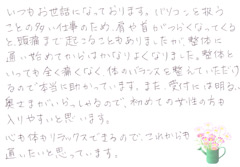 いつもお世話になっております。パソコンを扱う
ことの多い仕事のため、肩や首がつらくなってくる
と、頭痛まで起こることもありましたが、整体に
通い始めてからはかなりよくなりました。整体と
いっても全く痛くなく体のバランスを整えていただけ
るので本当に助かっています。また、受付には明るい
奥さまがいらっしゃるので、初めての女性の方も
入りやすいと思います。
心も体もリラックスできるので、これからも
通いたいと思っています。